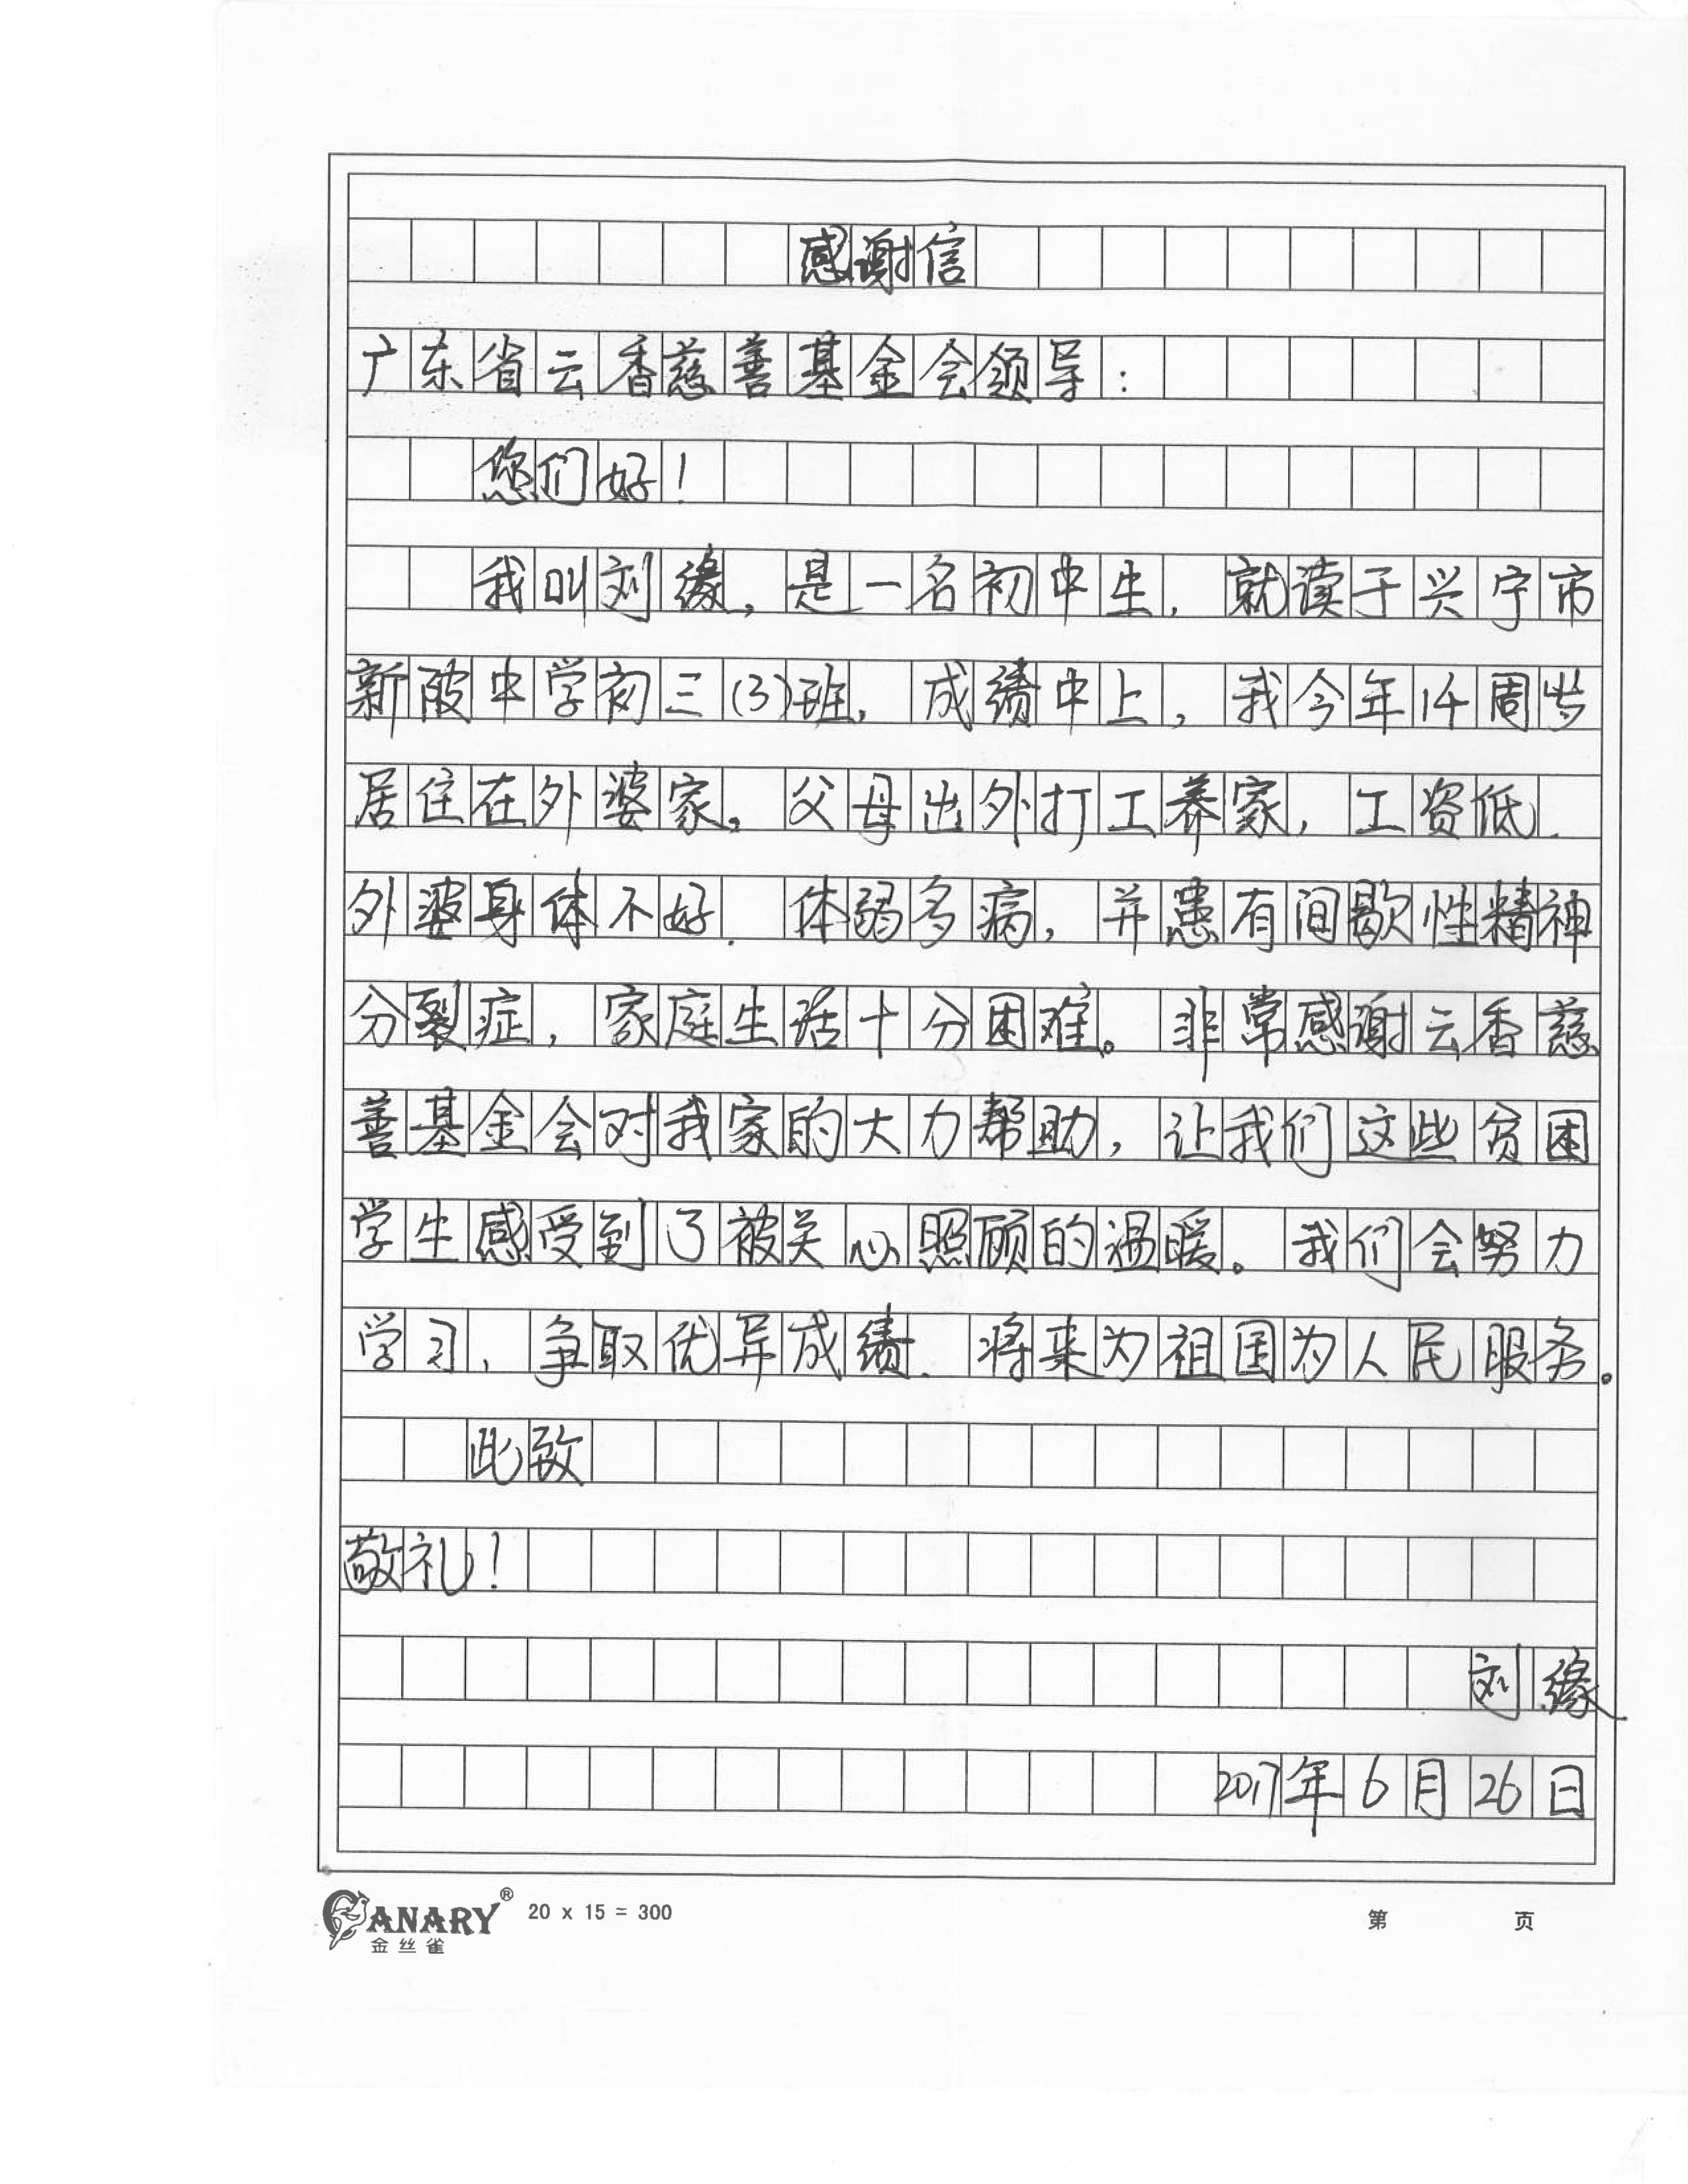 感谢信
广东省云香慈善基金会领导：
您们好！
我叫刘缘，是一名初中生，就读于兴宁市
新陂中学初三(3)班，成绩中上，我今年14周岁
居住在外婆家。父母出外打工养家，工资低．
外婆身体不好．体弱多病，并患有间歇性精神
分裂症，家庭生活十分困难。非常感谢云香慈
善基金会对我家的大力帮助，让我们这些贫困
学生感受到了被关心照顾的温暖。我们会努力
学习，争取优异成绩．将来为祖国为人民服务。
此致
敬礼！
刘缘
2017年6月26日
CANARY® 20 x 15 = 300 第 页
金丝雀